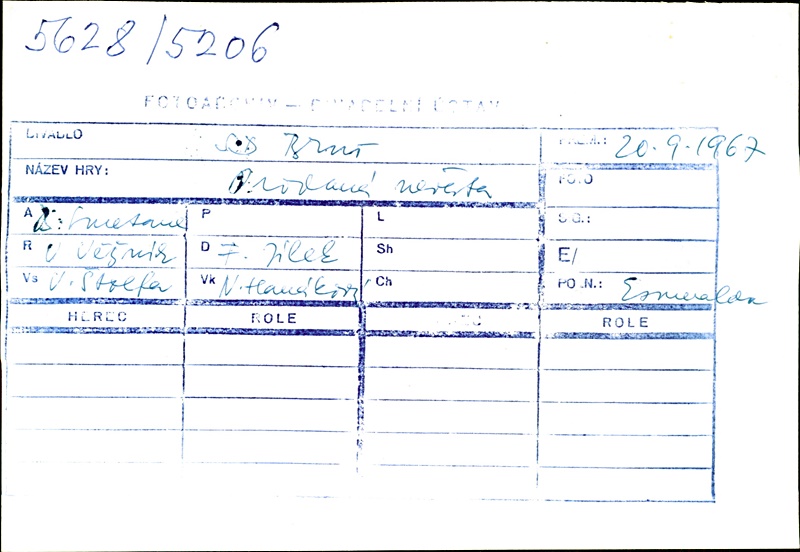 5628/5206
FOTOARCHIV – DIVADELNÍ ÚSTAV
DIVADLO SD Brno PREM.: 20.9.1967
NÁZEV HRY: Prodaná nevěsta FOTO
A B. Smetana P L SG.:
R V. Věžník D F. Jílek Sh E/
Vs V. Štolfa Vk N. Hanáková Ch POZN.: Esmeralda
HEREC ROLE HEREC ROLE